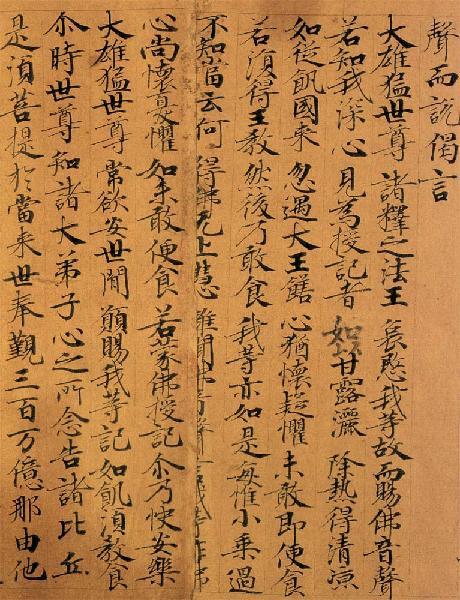 聲而説偈言
大雄猛世尊 諸釋之法王 哀愍我等故 而賜佛音聲
若知我深心 見為授記者 如以甘露灑 除熱得清涼
如從飢國来 忽遇大王饍 心猶懷疑懼 未敢即便食
若復得王教 然後乃敢食 我等亦如是 每惟小乘過
不知當云何 得佛无上慧 雖聞佛音聲 言我等作佛
心尚懷憂懼 如未敢便食 若蒙佛授記 尒乃快安樂
大雄猛世尊 常欲安世間 願賜我等記 如飢湏教食
尒時世尊知諸大弟子心之所念告諸比丘
是湏菩提於當来世奉覲三百万億那由他